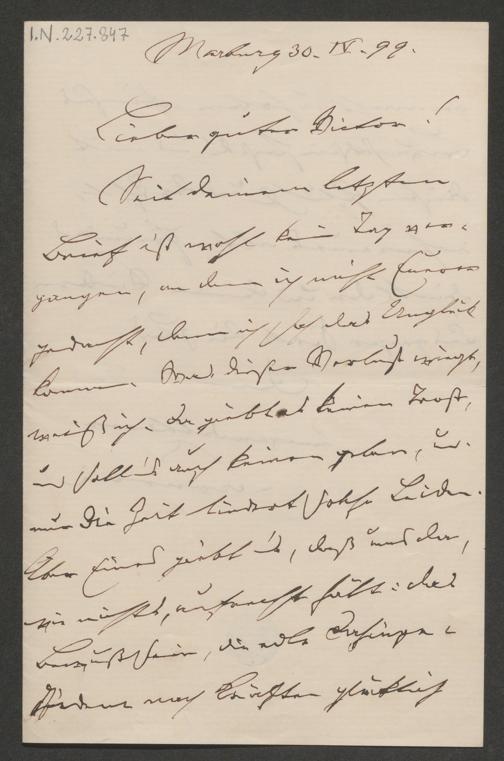 I.N. 227.847
Marburg 30. IV. 99.
Lieber guter Victor!
Seit deinem letzten
Brief ist wohl kein Tag ver-
gangen, an dem ich nicht Eurer
gedacht, denn ich sah das Unglück
kommen. Was dieser Verlust wiegt,
weiß ich. Da giebt es keinen Trost,
und soll's auch keinen geben, und
nur die Zeit lindert solche Leiden.
Aber Eines giebt's, daß uns da,
wie nichts, aufrecht hält: das
Bewußtsein, die edle
nach Kräften glücklich